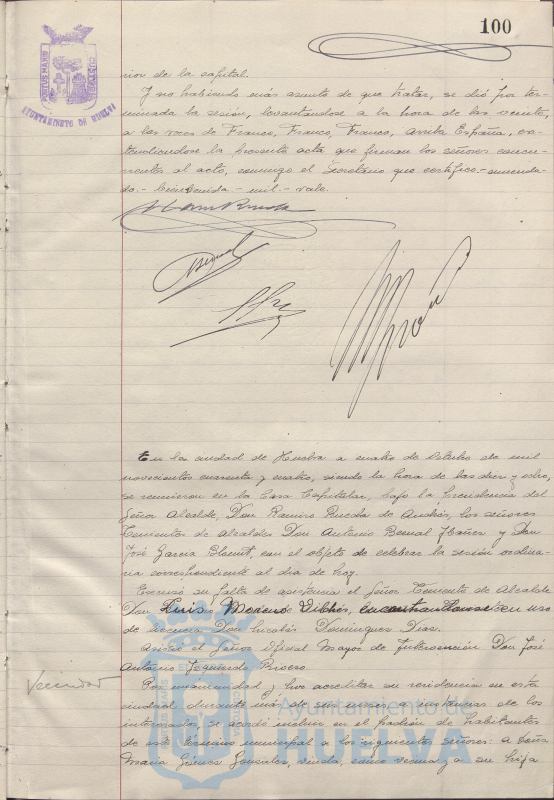 100
PORTUS MARIS
AYUNTAMIENTO DE HUELVA
rior de la capital.
Y no habiendo más asunto de que tratar, se dió por ter-
minada la sesión, levantándose a la hora de las veinte,
a las voces de Franco, Franco, Franco, Arriba España, ex-
tendiéndose la presente acta que firman los señores concu-
rrentes al acto, conmigo el Secretario que certifico.- enmenda-
do.- mil.- vale.
En la ciudad de Huelva a cuatro de Octubre de mil
novecientos cuarenta y cuatro, siendo la hora de las diez y ocho,
se reunieron en la Casa Capitular, bajo la Presidencia del
Señor Alcalde, Don Ramiro Rueda de Andrés, los señores
Tenientes de Alcaldes Don Antonio Bernal Ibáñez y Don
José García con el objeto de celebrar la sesión ordina-
ria correspondiente al día de hoy.
Excusó su falta de asistencia el Señor Teniente de Alcalde
Don Luis Moreno de encontrandose en uso
de licencia Don Nicolás Domínguez Díaz.
Asistió el Señor Oficial Mayor de Intervención Don José
Antonio Izquierdo Rivero.
Vecindad
Por unanimidad y tras acreditar su residencia en esta
ciudad durante más de seis meses, a instancias de los
interesados se acordó incluir en el padrón de habitantes
de este término municipal a los siguientes señores: a Doña
María Gómez González, viuda, como vecina y a su hija
Ayuntamiento de
HUELVA